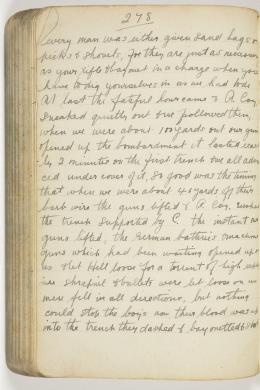 278
every man was either given sand bags or
picks & shovels, for they are just as necessary
as your rifle & bayonet in a charge when you
have to dig yourselves in as we had to do
At last the fateful hour came & A Coy.
sneaked quietly out & we followed them,
when we were about 100 yards out our guns
opened up the bombardment it lasted exact
ly 2 minutes on the first trench we all advan
ced under cover of it, so good was the timing
that when we were about 40 yards off their
barb wire the guns lifted & A Coy. rushed
the trench supported by C. the instant our
guns lifted, the German batteries & machine
guns which had been waiting opened up on
us & let Hell loose for a torrent of high explo
sive shrapnel & bullets were let loose on us
men fell in all directions, but nothing
could stop the boys now their blood was up
into the trench they dashed & bayonetted &